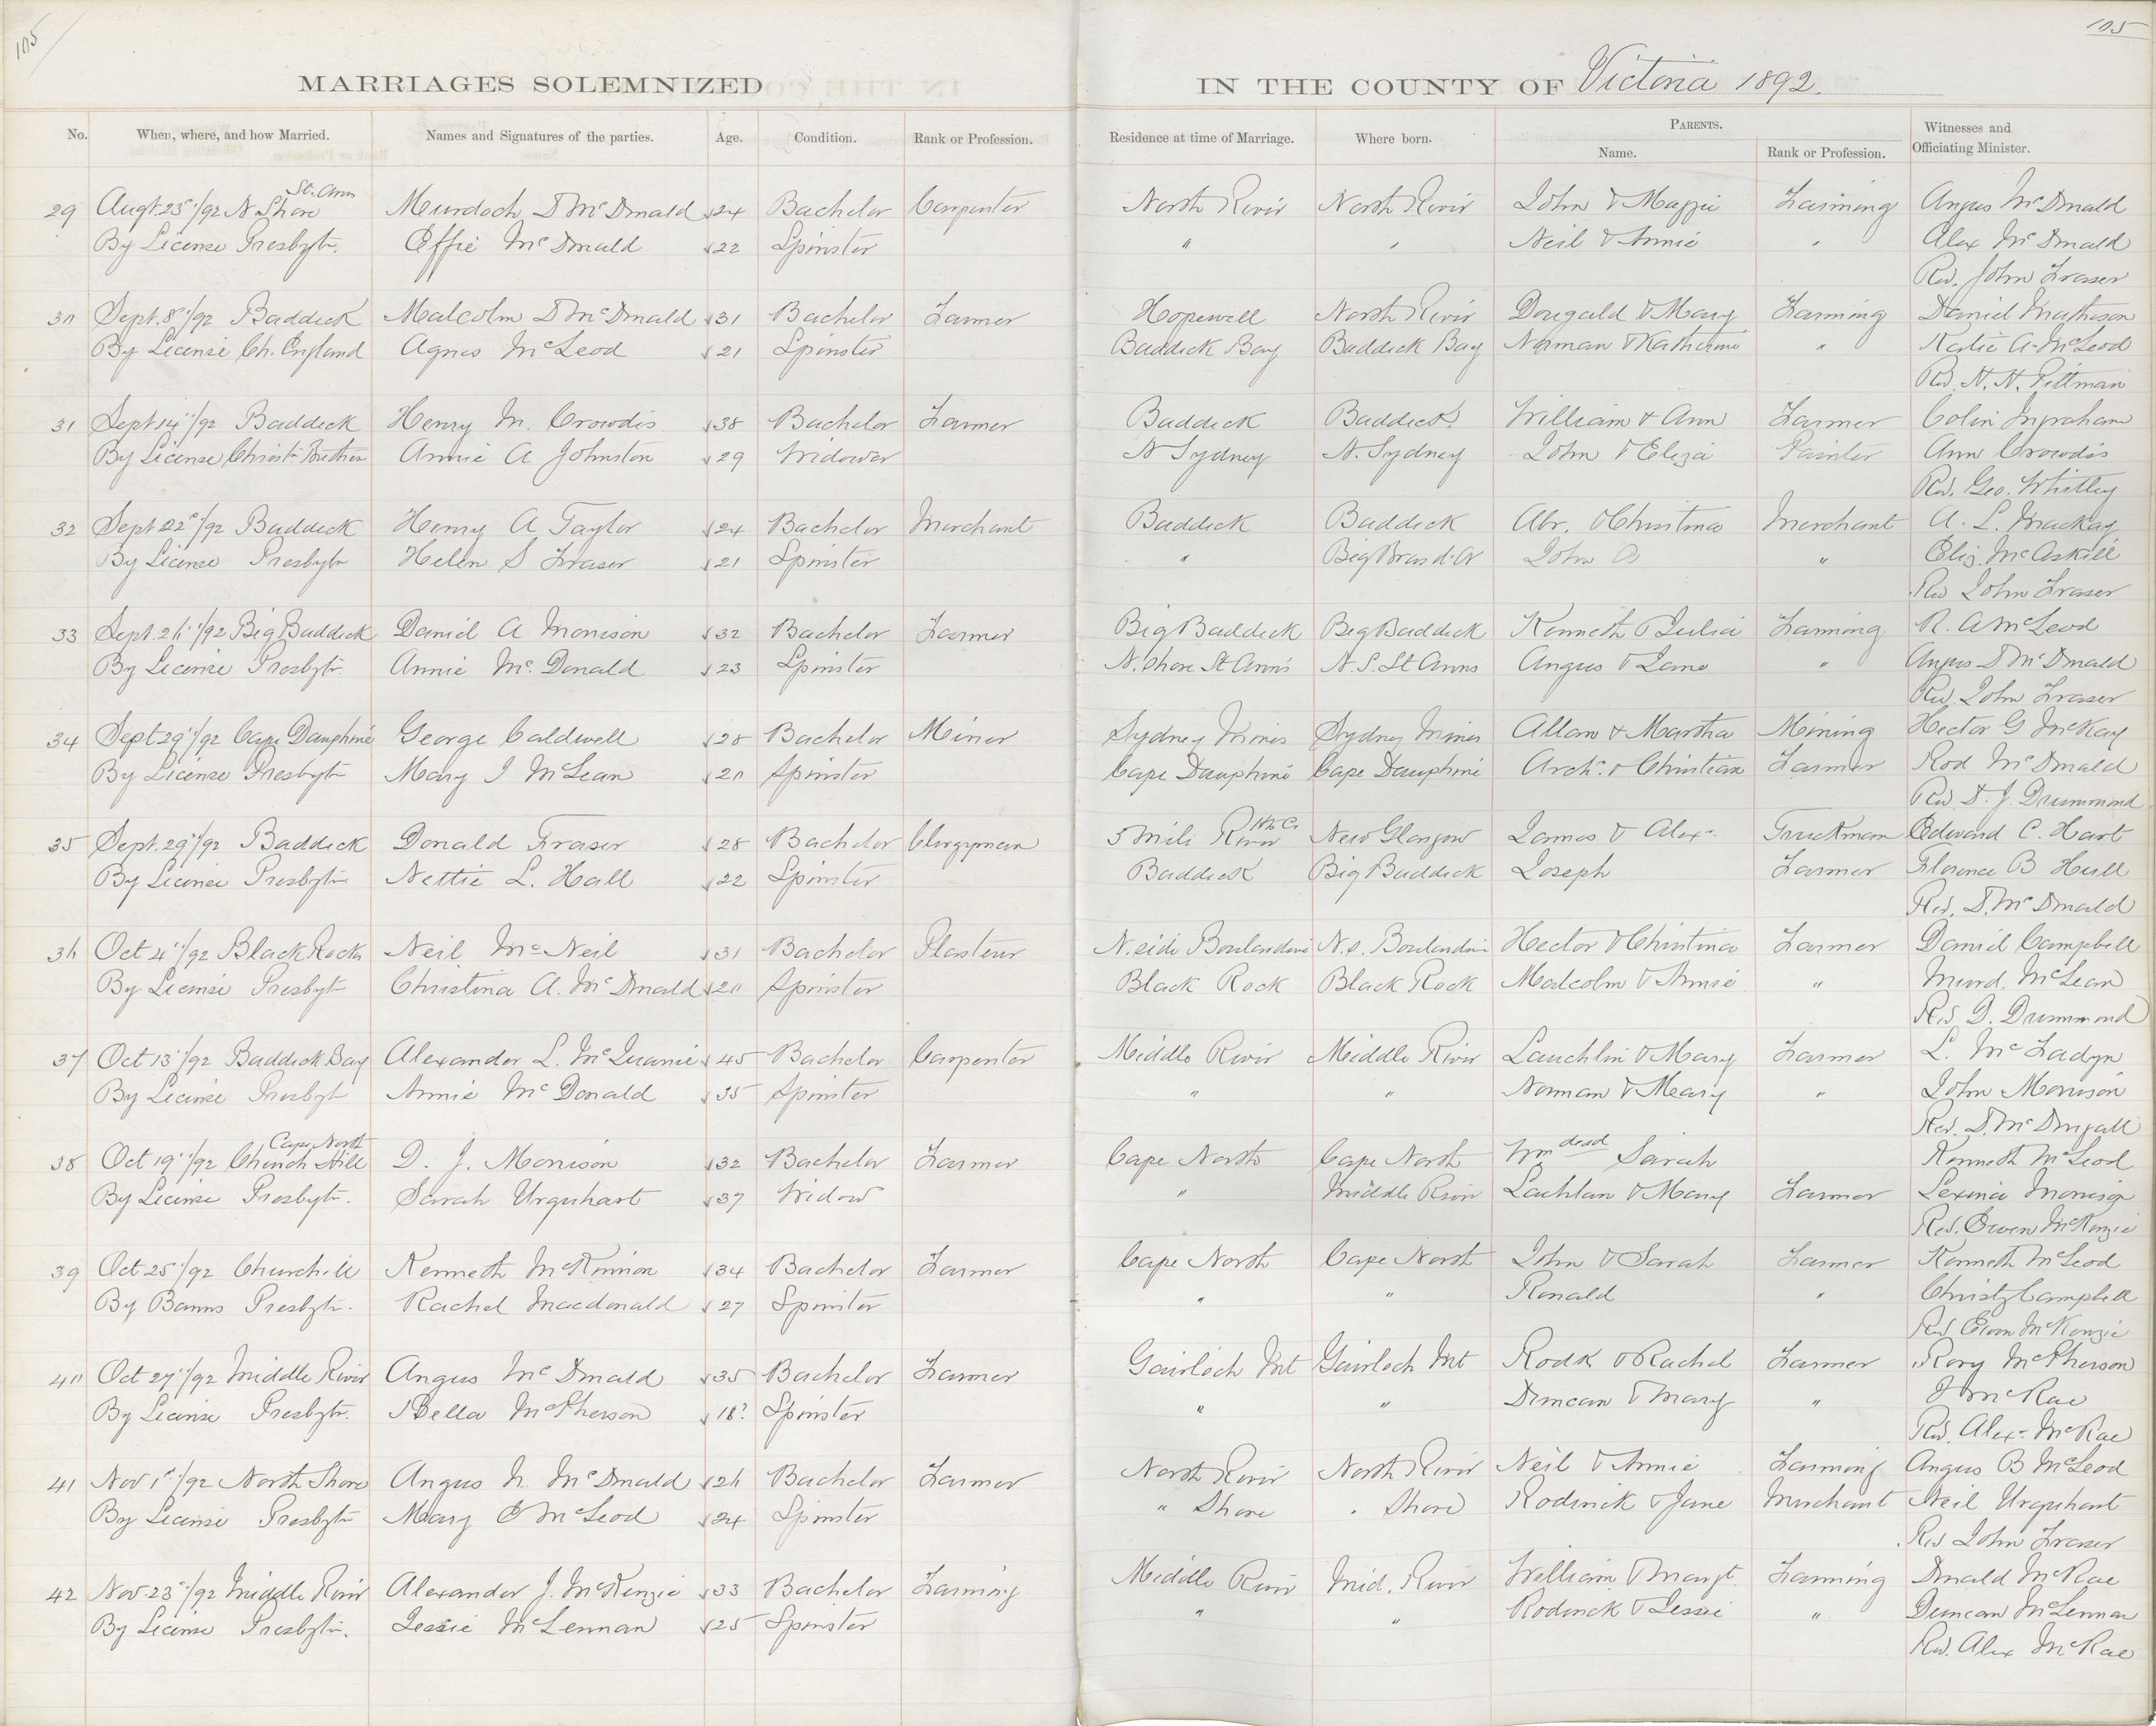 105
105
MARRIAGES SOLEMNIZED IN THE COUNTY OF Victoria 1892.
No. When, where, and how Married. Names and Signatures of the parties. Age. Condition. Rank or Profession. Residence at time of Marriage. Where born. PARENTS. Name. Rank or Profession. Witnesses and Officiating Minister.
St. Anns
29 Augt. 23"/92 N Shore Murdoch D McDonald 24 Bachelor Carpenter North River North River John & Maggie Farming Angus McDonald
By License Presbytr. Effie McDonald 22 Spinster " " Neil & Annie " Alex McDonald
Rev. John Fraser
30 Sept. 8"/92 Baddeck Malcolm D McDonald 31 Bachelor Farmer Hopewell North River Dougald & Mary Farming Daniel Matheson
By License Ch. England Agnes McLeod 21 Spinster Baddeck Bay Baddeck Bay Norman & Katherine " Katie A. McLeod
Rev. Pittman
31 Sept 14"/92 Baddeck Henry M. Crowdis 38 Bachelor Farmer Baddeck Baddeck William & Ann Farmer Colin Ingraham
By License Christn Brethren Annie A Johnston 29 Widower N Sydney N. Sydney John & Eliza Painter Ann Crowdis
Rev. Geo. Whitley
32 Sept 22"/92 Baddeck Henry A Taylor 24 Bachelor Merchant Baddeck Baddeck Abr. & Christina Merchant A. L. Mackay
By License Presbytr Helen S Fraser 21 Spinster " Big Bras d'Or John A " Eliz. McAskill
Rev John Fraser
33 Sept. 26"/92 Big Baddeck Daniel A Morrison 32 Bachelor Farmer Big Baddeck Big Baddeck Kenneth & Julia Farming R. A McLeod
By License Presbytr. Annie McDonald 23 Spinster N. Shore St Ann's N. S. St Anns Angus & Jane " Angus D McDonald
Rev. John Fraser
34 Sept 29"/92 Cape Dauphine George Caldwell 28 Bachelor Miner Sydney Mines Sydney Mines Allan & Martha Mining Hector G McKay
By License Presbytr Mary J McLean 20 Spinster Cape Dauphine Cape Dauphine Archd. & Christian Farmer Rod McDonald
Rev. D. J. Drummond
35 Sept. 29"/92 Baddeck Donald Fraser 28 Bachelor Clergyman 5 Mile River New Glasgow James & Alex. Truckman Edward C. Hart
By License Presbytr Nettie L. Hall 22 Spinster Baddeck Big Baddeck Joseph Farmer Florence B Hull
Rev. D. McDonald
36 Oct 4"/92 Black Rock Neil McNeil 31 Bachelor Plasterer N. side Boularderie N. S. Boularderie Hector & Christina Farmer Daniel Campbell
By License Presbytr Christina A. McDonald 20 Spinster Black Rock Black Rock Malcolm & Annie " Murd. McLean
Rev D. Drummond
37 Oct 13"/92 Baddeck Bay Alexander L. McQuarrie 45 Bachelor Carpenter Middle River Middle River Lauchlin & Mary Farmer L. McFadyn
By License Presbyt Annie McDonald 35 Spinster " " Norman & Mary " John Morrison
Rev. D. McDougall
Cape North
38 Oct 19"/92 Church Hill D. J. Morrison 32 Bachelor Farmer Cape North Cape North Wm dead Sarah Kenneth McLeod
By License Presbytr. Sarah Urquhart 37 Widow " Middle River Lachlan & Mary Farmer Lexena Morrison
Rev. Ewen McKenzie
39 Oct 25"/92 Churchill Kenneth McKinnon 34 Bachelor Farmer Cape North Cape North John & Sarah Farmer Kenneth McLeod
By Banns Presbytr. Rachel Macdonald 27 Spinster " " Ronald " Christy Campbell
Rev. Ewen McKenzie
40 Oct 27"/92 Middle River Angus McDonald 35 Bachelor Farmer Gairloch Mt Gairloch Mt Rodk & Rachel Farmer Rory McPherson
By License Presbytr. Bella McPherson 18? Spinster " " Duncan & Mary " J McRae
Rev. Alex. McRae
41 Nov 1st/92 North Shore Angus N. McDonald 26 Bachelor Farmer North River North River Neil & Annie Farming Angus B McLeod
By License Presbytr Mary E McLeod 24 Spinster " Shore " Shore Roderick & Jane Merchant Neil Urquhart
Rev John Fraser
42 Nov 23"/92 Middle River Alexander J. McKenzie 33 Bachelor Farming Middle River Mid. River William & Margt. Farming Donald McRae
By License Presbytr. Jessie McLennan 25 Spinster " " Roderick & Jessie " Duncan McLennan
Rev. Alex McRae